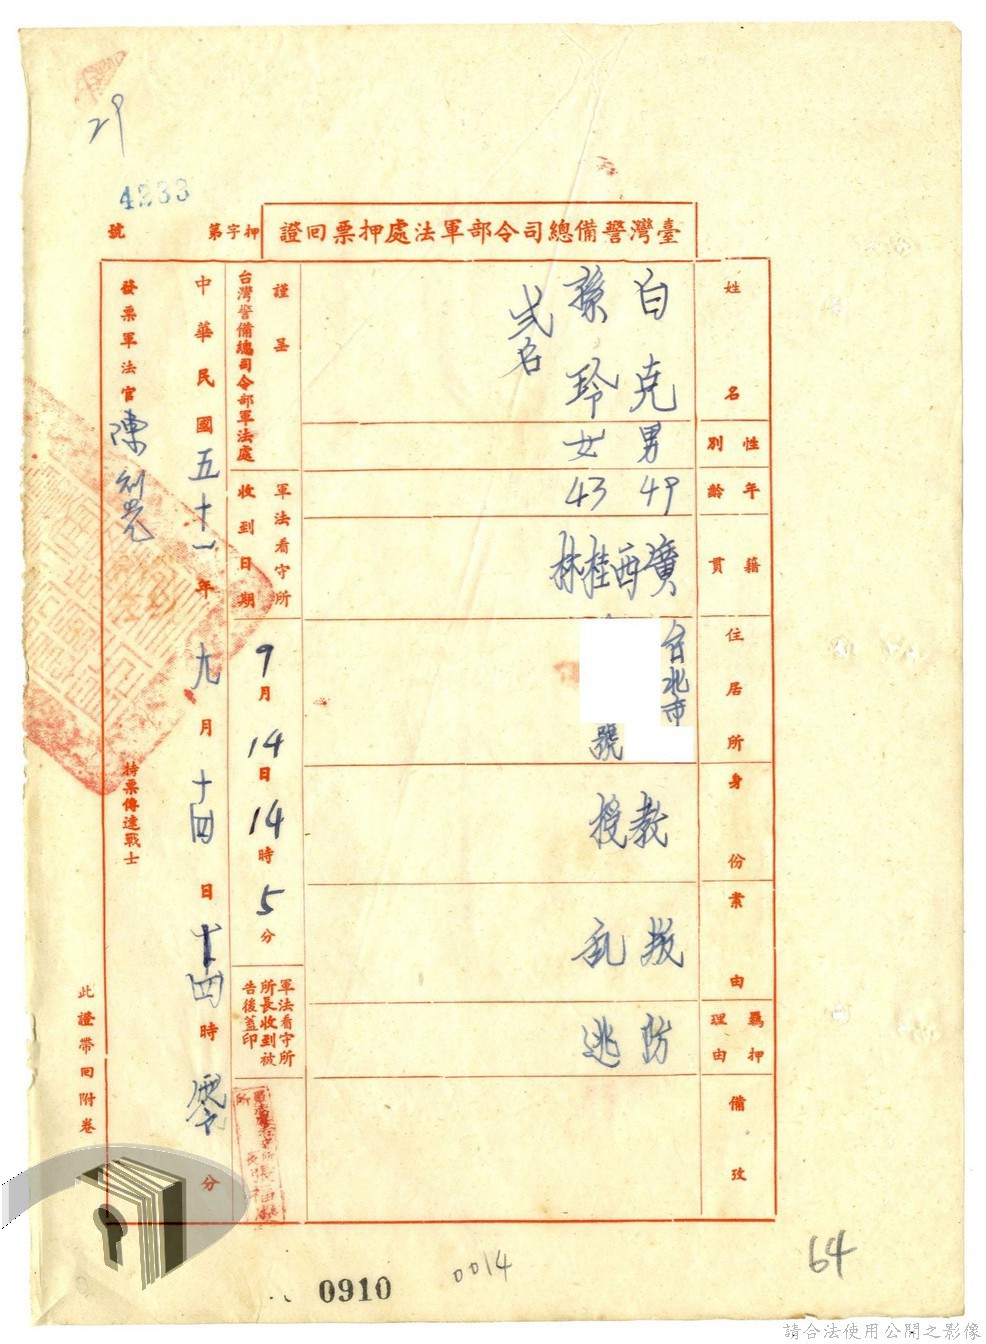 29
4233
臺灣警備總司令部軍法處押票回證
押字第
號
姓名
白克
孫玲
弍名
性別
男
女
年齡
49
43
籍貫
廣西桂林
住居所
台北市
號
身份
教授
案由
叛乱
羈押理由
防逃
備攷
謹呈
台灣警備總司令部軍法處
軍法看守所
收到日期
9月14日14時5分
軍法看守所
所長收到被
告後蓋印
中華民國五十一年九月十四日十四時零分
發票軍法官
持票傳達戰士
此證帶回附卷
0910
0014
64
請合法使用公開之影像